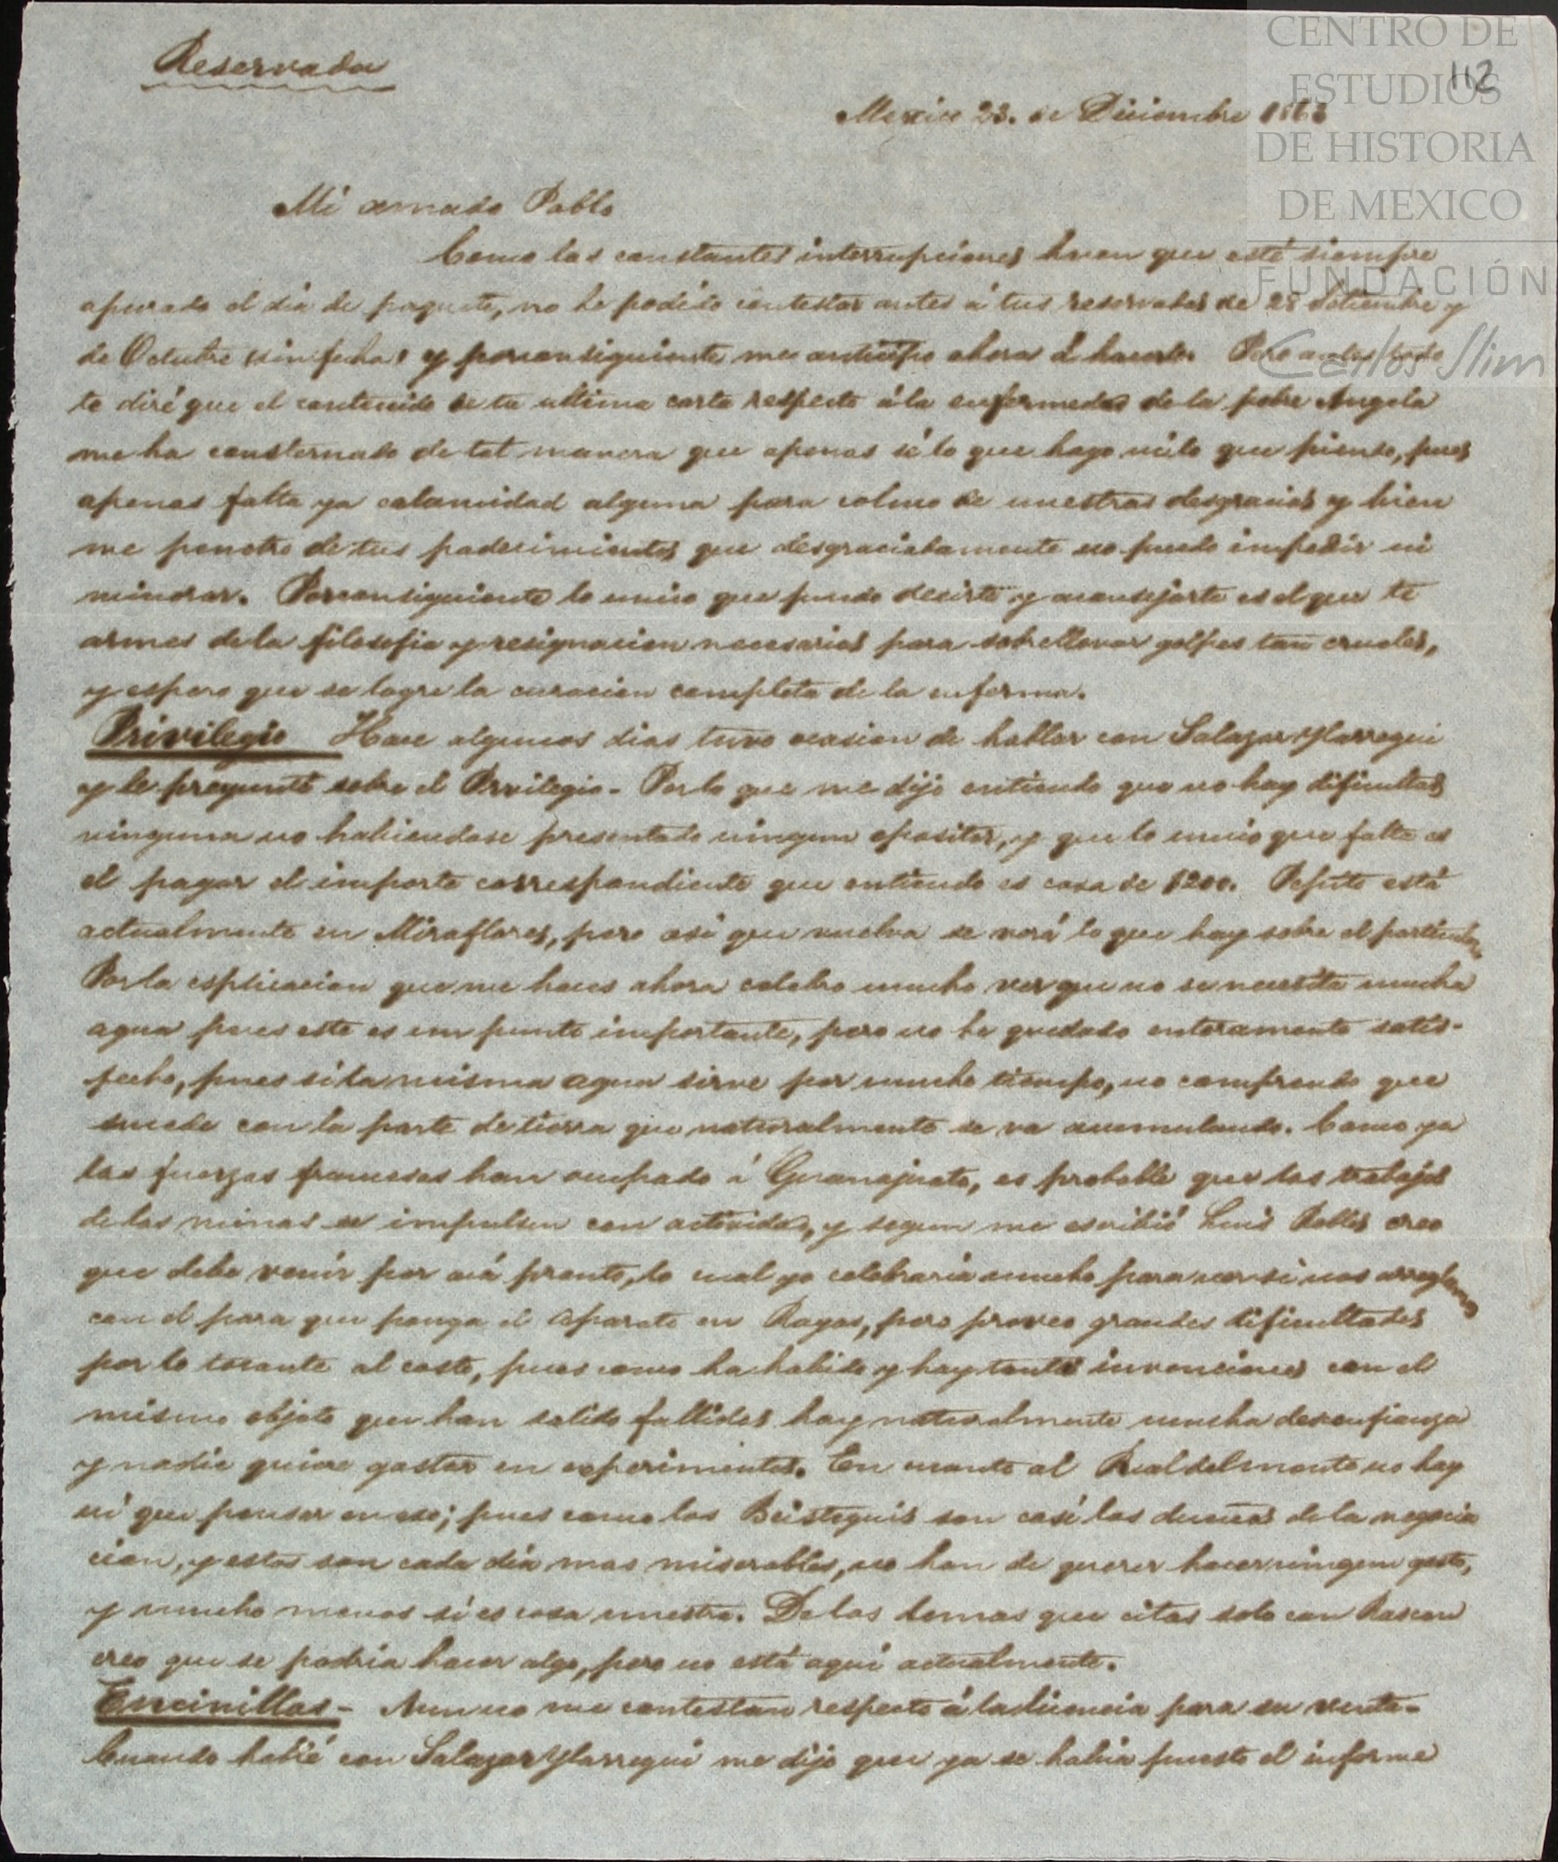 Reservada
112
Mexico 23. de Diciembre 1863
Mi amado Pablo
Como las constantes interrupciones hacen que esté siempre
apurado el dia de paquete, no he podido contestar antes á tus reservadas de 28 Setiembre y
de Octubre (sin fecha) y porconsiguiente me anticipo ahora á hacerlo. Pero antes todo
te diré que el contenido de tu ultima carta respecto á la enfermedad de la pobre Angela
me ha consternado de tal manera que apenas sé lo que hago ni lo que pienso, pues
apenas falta ya calamidad alguna para colmo de nuestras desgracias y bien
me penetro de tus padecimientos que desgraciadamente no puedo impedir ni
minorar. Porconsiguiente lo unico que puedo decirte y aconsejarte es el que te
armes de la filosofia y resignacion necesarias para sobrellevar golpes tan crueles,
y espero que se logre la curacion completa de la enferma.
Privilegio Hace algunos dias tuve ocasion de hablar con Salazar Ylarregui
y le pregunté sobre el Privilegio - Por lo que me dijo entiendo que no hay dificultad
ninguna no habiendose presentado ningun opositor, y que lo unico que falta es
el pagar el importe correspondiente que entiendo es cosa de $200. Pepito está
actualmente en Miraflores, pero asi que vuelva se verá lo que hay sobre el particular
Por la esplicacion que me haces ahora celebro mucho ver que no se necesita mucha
agua pues este es un punto importante, pero no he quedado enteramente satis-
fecho, pues si la misma agua sirve por mucho tiempo, no comprendo que
sucede con la parte de tierra que naturalmente se va acumulando. Como ya
las fuerzas francesas han ocupado á Guanajuato, es probable que los trabajos
de las minas se impulsen con actividad, y segun me escribió Luis Robles creo
que debe venir por acá pronto, lo cual yo celebraria mucho para ver si nos arreglamos
con el para que ponga el aparato en Rayas, pero preveo grandes dificultades
por lo tocante al costo, pues como ha habido y hay tantas invenciones con el
mismo objeto que han salido fallidas hay naturalmente mucha desconfianza
y nadie quiere gastar en experimentos. En cuanto al Real del monte no hay
ni que pensar en eso; pues como los Beisteguis son casi los dueños de la negocia
cion, y estos son cada dia mas miserables, no han de querer hacer ningun gasto,
y mucho menos si es cosa nuestra. De los demas que citas solo con Rascon
creo que se podria hacer algo, pero no está aqui actualmente.
Encinillas - Aun no me contestan respecto á la licencia para su venta -
Cuando hablé con Salazar Ylarregui me dijo que ya se habia puesto el informe
CENTRO DE
ESTUDIOS
DE HISTORIA
DE MEXICO
FUNDACIÓN
Carlos Slim